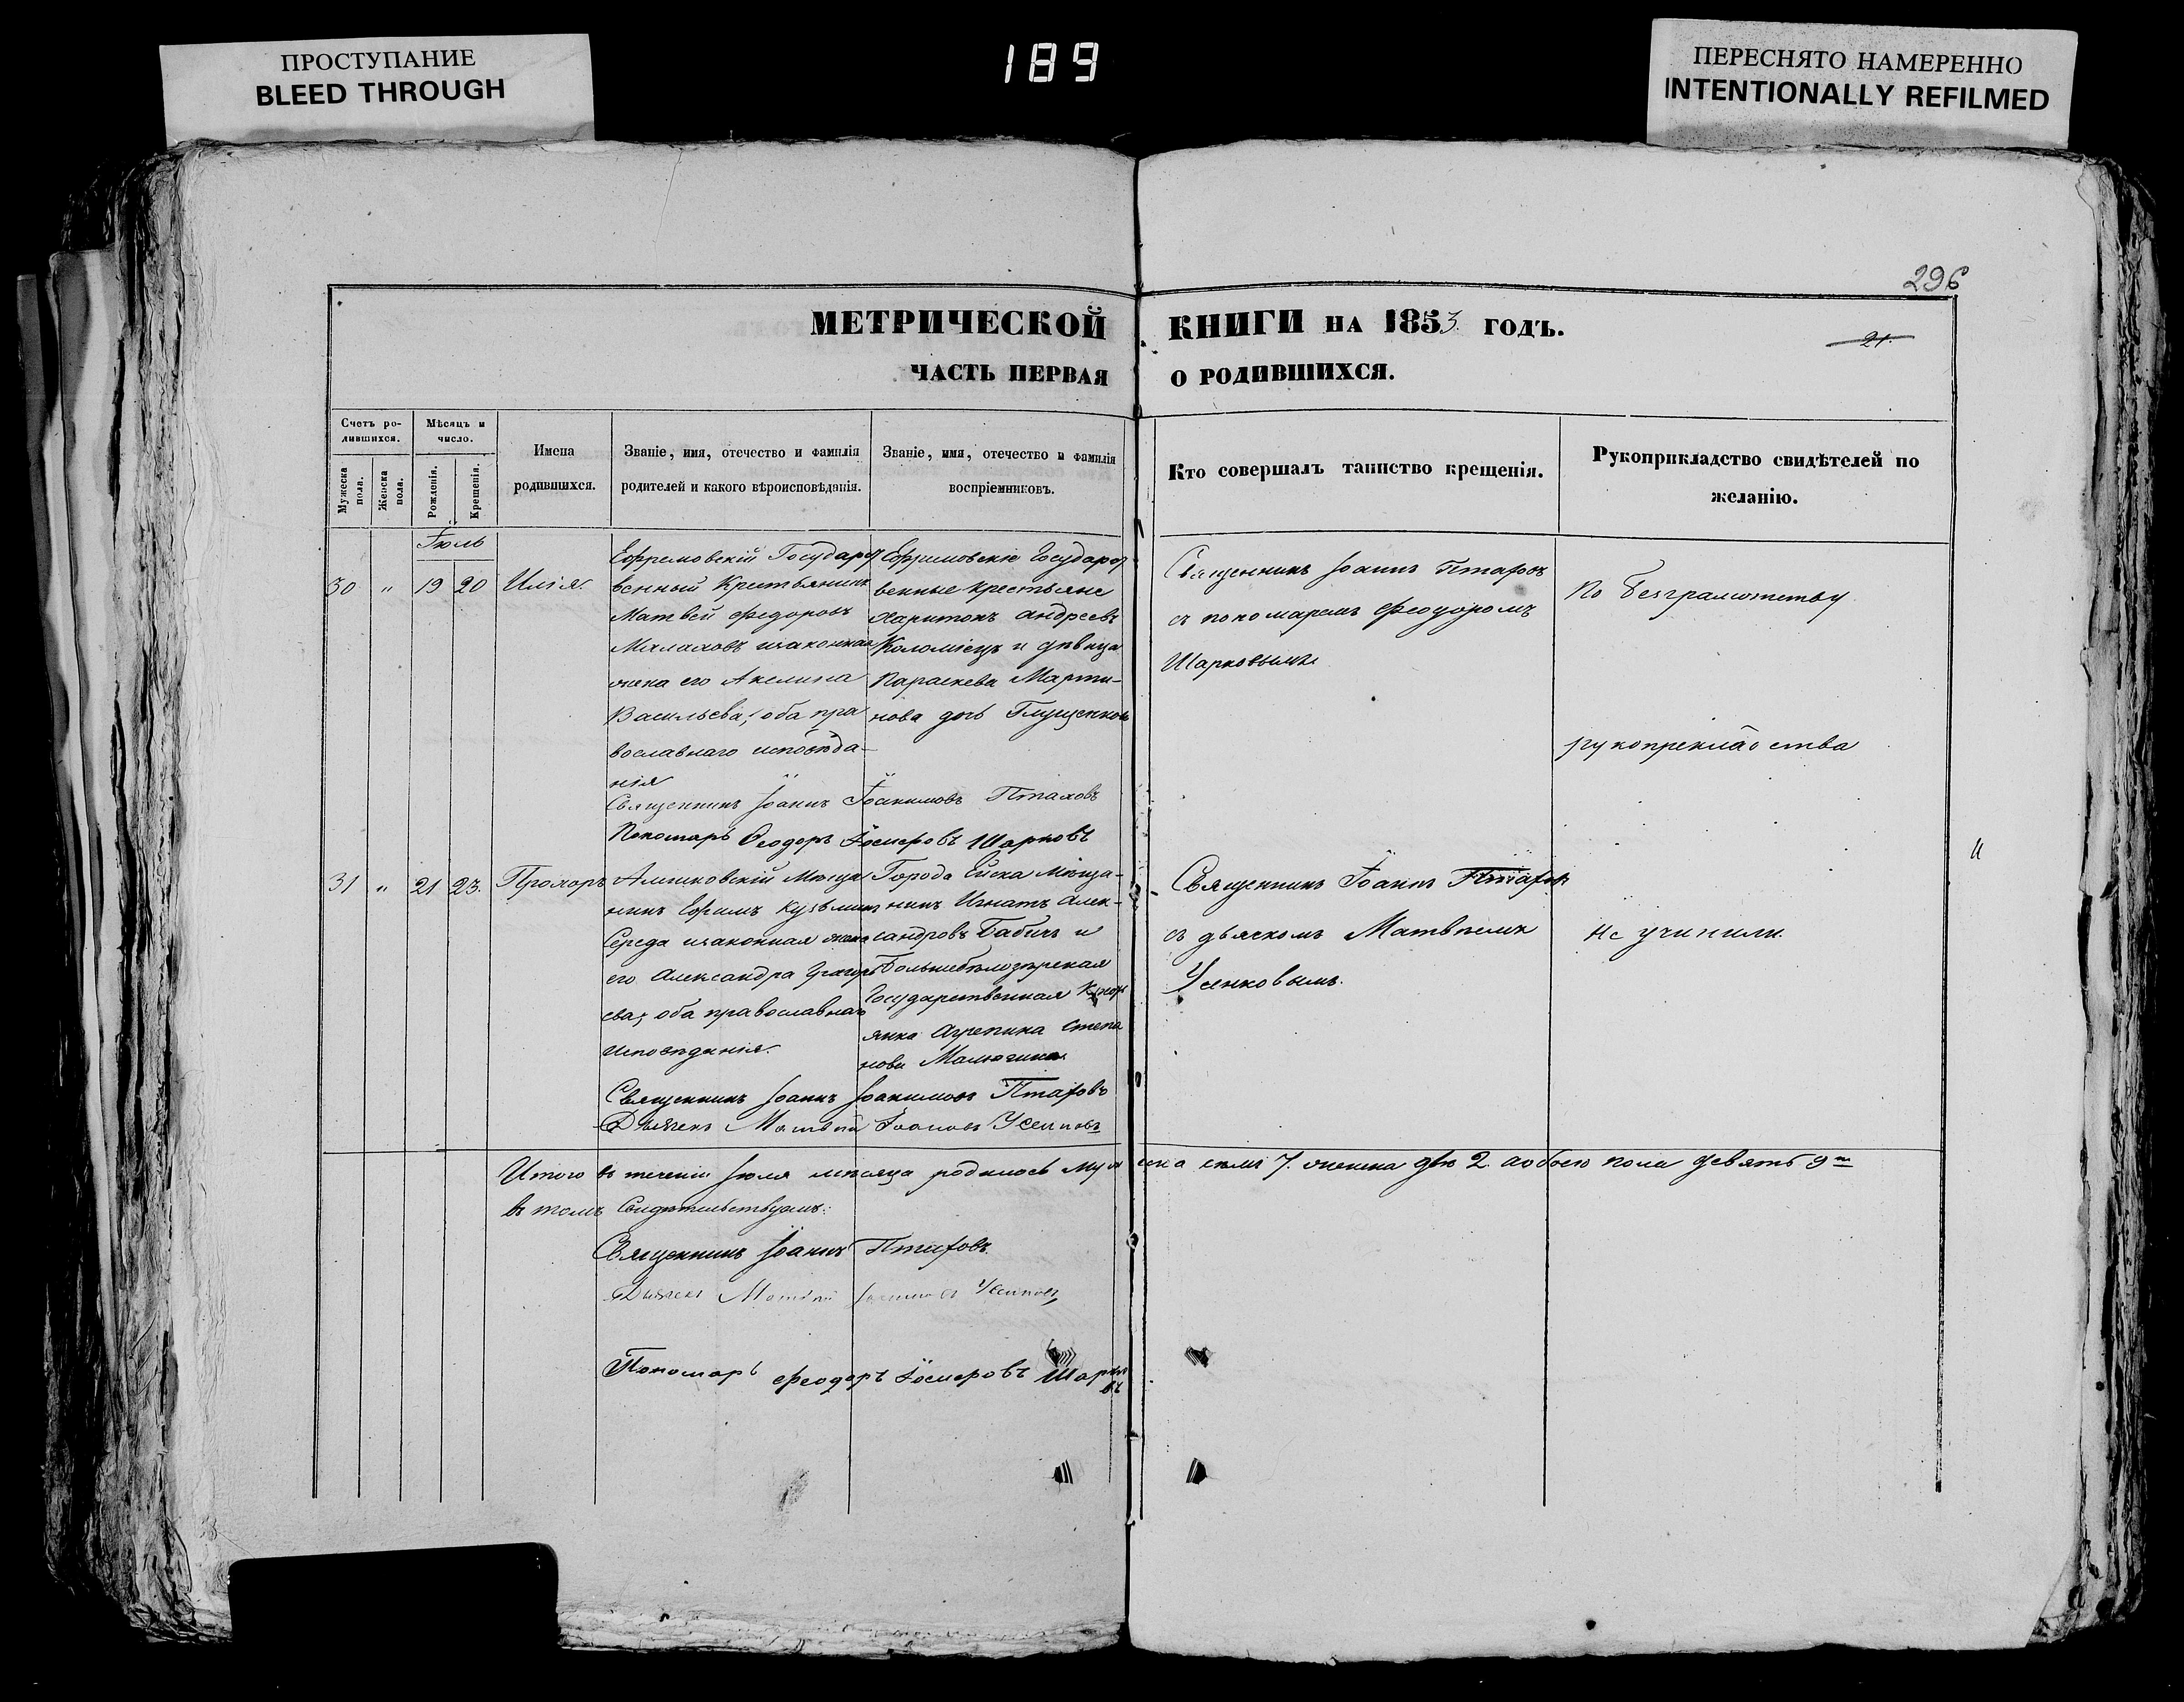 ПРОСТУПАНИЕ
BLEED THROUGH
189
ПЕРЕСНЯТО НАМЕРЕННО
INTENTIONALLY REFILMED
296
МЕТРИЧЕСКОЙ КНИГИ НА 1853 ГОДЪ.
21.
ЧАСТЬ ПЕРВАЯ О РОДИВШИХСЯ.
Счетъ ро-
дившихся.
Мужеска пола.
Женска пола.
Мѣсяцъ и
число.
Рожденія.
Крещенія.
Имена
родившихся.
Званіе, имя, отечество и фамилія
родителей и какого вѣроисповѣданія.
Званіе, имя, отечество и фамилія
воспріемниковъ.
Кто совершалъ таинство крещенія.
Рукоприкладство свидѣтелей по
желанію.
Іюль
30 " 19 20 Илія.
Ефремовскій Государст
венный Крестьянинъ
Матвей Федоровъ
Малаховъ изаконная
жена его Акелина
Васильева, оба пра
вославнаго исповѣда-
нія
Ефремовскіе Государст
венные крестьяне
Харитонъ Андреевъ
Коломіецъ и дѣвица
Параскева Марти-
нова дочь
Священникъ Іоаннъ Птаховъ
съ пономаремъ Феодоромъ
Шарковымъ
По безграмотству
рукопрекладства
Священникъ Іоаннъ Іоакимовъ Птаховъ
Пономарь Феодоръ Шарковъ
31 " 21 23. Прохоръ
Мѣща
нинъ Ефимъ Кузьминъ
Середа изаконная жена
его Александра Григорь
ева, оба православнаго
исповѣданія.
Города Ейска мѣща-
нинъ Игнатъ Алек-
сандровъ Бабичъ и
Большебѣлозѣрская
Государственная
янка Агрепина Степа
нова
Священникъ Іоаннъ Птаховъ
съ дьячкомъ Матвѣемъ
Усенковымъ.
не учинили.
Священникъ Іоаннъ Іоакимовъ Птаховъ
Дьячекъ Матвѣй
Итого въ теченіи Іюля мѣсяца родилось мужеска семь 7. женска двѣ 2. а обоего пола девять 9
въ томъ Свидѣтельствуемъ:
Священникъ Іоаннъ Птаховъ.
Дьячекъ Матвѣй
Пономарь Феодоръ Шарковъ